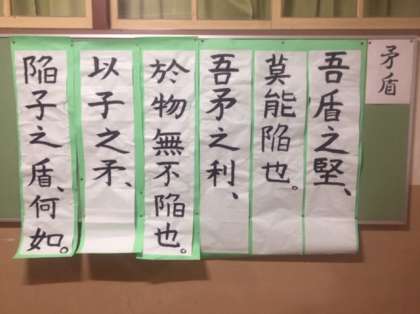 矛盾
吾盾之堅、
莫能陥也。
吾矛之利、
於物無不陥也。
以子之矛、
陥子之盾、何如。